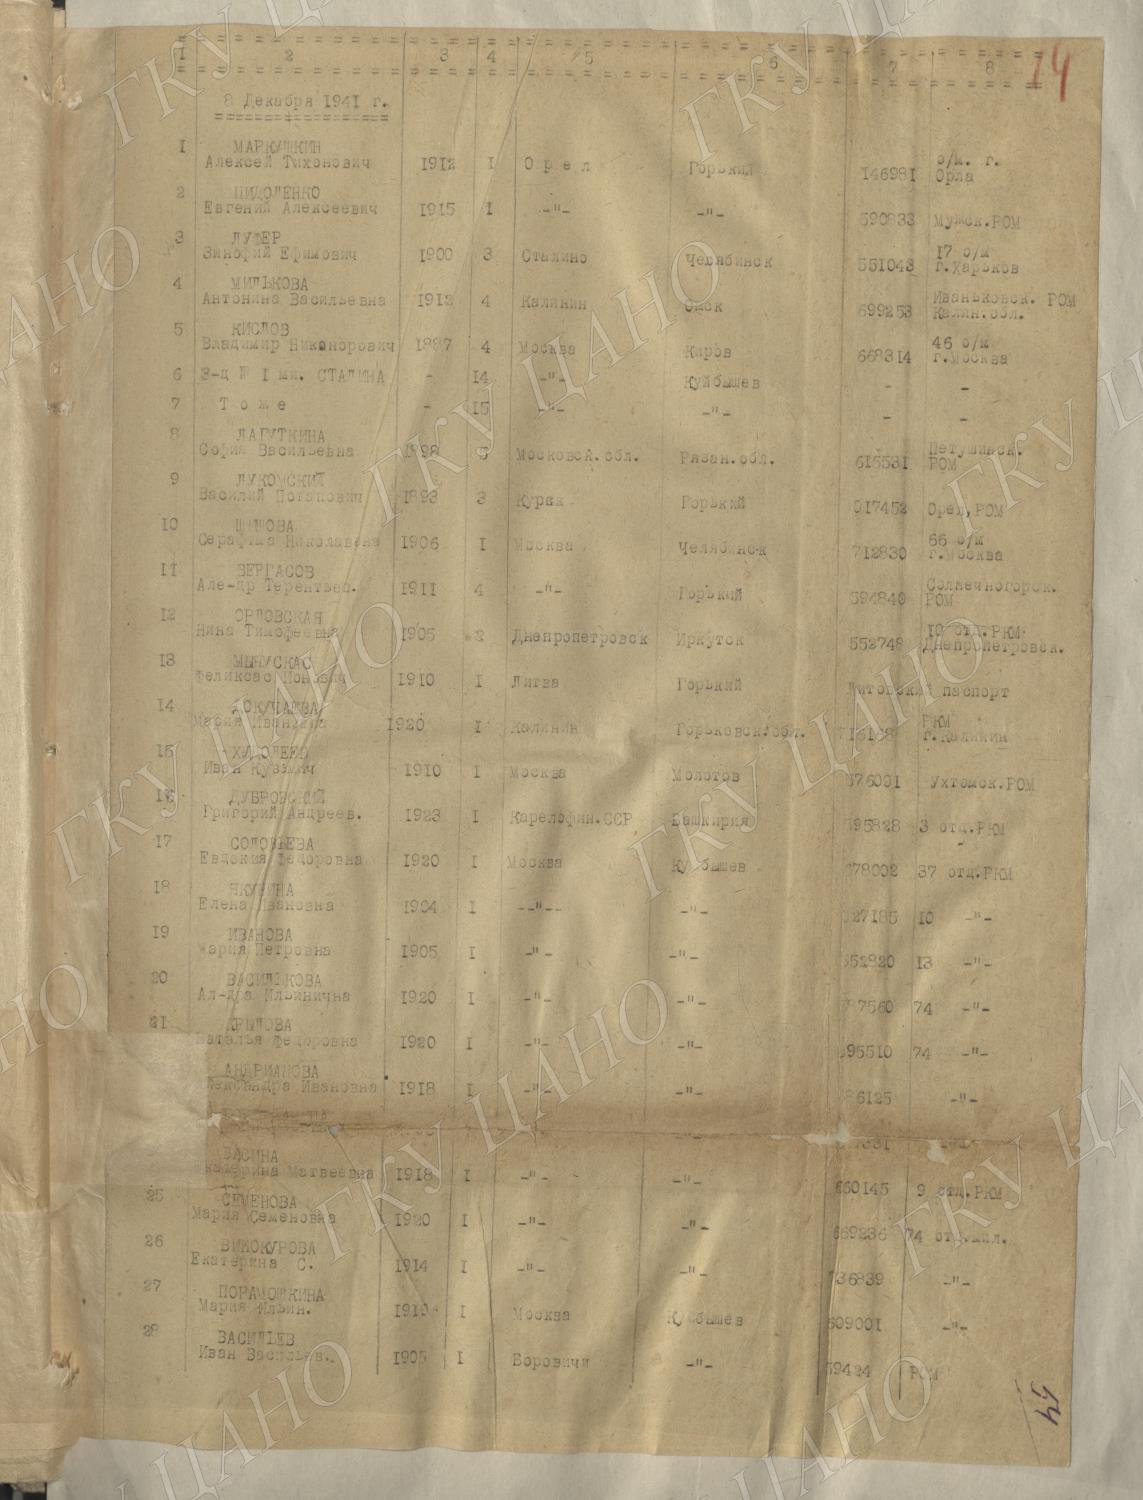 1 2 3 4 5 6 7 8 14
8 Декабря 1941 г.
1 МАРКУШКИН
Алексей Тихонович 1912 I О р е л Горький 146981 о/м. г. Орла
2 ПИДОДЕНКО
Евгений Алексеевич 1915 I -"- -"- 590833 Мужск.РОМ
3 ЛУФЕР
Зинофий Ефимович 1900 3 Сталино Челябинск 551043 17 о/м г.Харьков
4 МИЛЬКОВА
Антонина Васильевна 1912 4 Калинин Омск 699253 Иваньковск. РОМ Калин.обл.
5 КИСЛОВ
Владимир Никонорович 1887 4 Москва Киров 668314 46 о/м г.Москва
6 З-д № I им. СТАЛИНА - 14 -"- Куйбышев - -
7 Т о ж е - 15 -"- -"- - -
8 ЛАГУТКИНА
София Васильевна 1898 5 МосковсА.обл. Рязан.обл. 615531 Петушинск. РОМ
9 ЛУКОМСКИЙ
Василий Потапович 1893 3 Курск Горький 017452 Орел,РОМ
10
Серафима Николаевна 1906 I Москва Челябинск 712830 66 о/м г.Москва
11 ВЕРГАСОВ
Але-др Терентьев. 1911 4 -"- Горький 594840 Солнечногорск. РОМ
12 ОРЛОВСКАЯ
Нина Тимофеевна 1905 2 Днепропетровск Иркутск 552748 10 отд.РКМ Днепропетровск.
13
Феликсас 1910 I Литва Горький Литовский паспорт
14
Мария Ивановна 1920 I Калинин Горьковск.обл. РКМ г.Калинин
15
Иван Кузьмич 1910 I Москва Молотов 576001 Ухтомск.РОМ
16 ДУБРОВСКИЙ
Григорий Андреев. 1923 I Карелофин.ССР Башкирия 595828 3 отд.РКМ
17 СОЛОВЬЕВА
Евдокия Федоровна 1920 I Москва Куйбышев 678002 37 отд.РКМ
18
Елена Ивановна 1904 I --"-- -"- 27185 10 -"-
19 ИВАНОВА
Мария Петровна 1905 I -"- -"- 52820 13 -"-
20 ВАСИЛЬКОВА
Ал-дра Ильинична 1920 I -"- -"- 7560 74 -"-
21 КРЫЛОВА
Наталья Федоровна 1920 I -"- -"- 95510 74 -"-
АНДРИАНОВА
Александра Ивановна 1918 I -"- -"- 86125 -"-
-"-
ВАСИНА
Екатерина Матвеевна 1918 I -"- -"- 660145 9 отд.РКМ
25 СЕМЕНОВА
Мария Семеновна 1920 I -"- -"- 669236 74 отд.мил.
26 ВИНОКУРОВА
Екатерина С. 1914 I -"- -"- 36839 -"-
27 ПОРАМОШКИНА
Мария Ильин. 1919 I Москва Куйбышев 609001 -"-
28 ВАСИЛЬЕВ
Иван Васильев. 1905 I Боровичи -"- 59424 РОМ
ГКУ ЦАНО